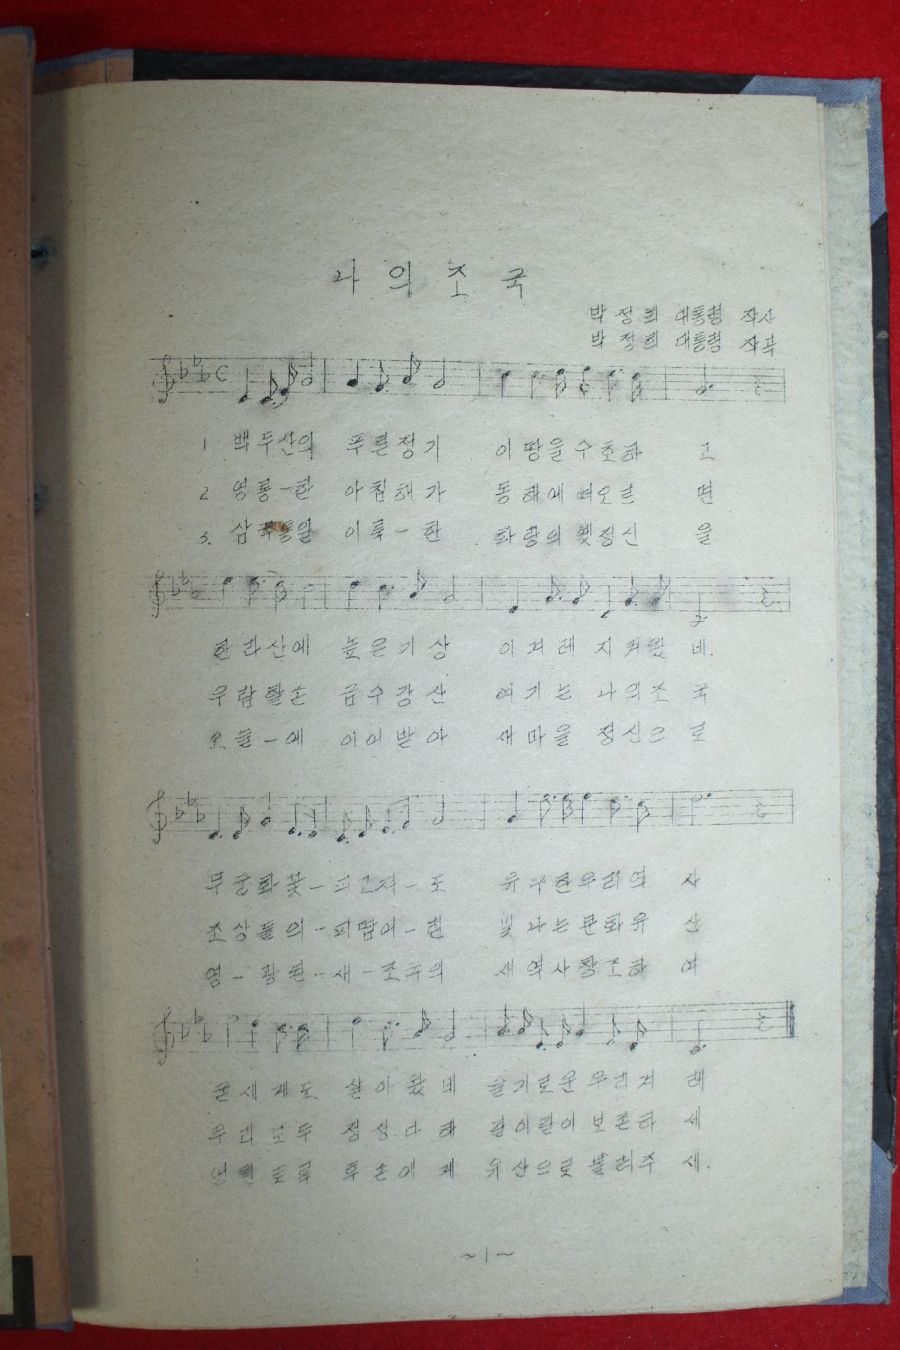 나의조국
박정희 대통령 작사
박정희 대통령 작곡
1 백두산의 푸른정기 이땅을수호하 고
2 영롱-한 아침해가 동해에떠오르 면
3. 삼국통일 이룩-한 화랑의옛정신 을
한라산에 높은기상 이겨레 지켜왔 네.
우람할손 금수강산 여기는 나의조 국
오늘-에 이어받아 새마을 정신으 로
무궁화꽃-피고져-도 유구한우리역 사
조상들의-피땀어-린 빛나는문화유 산
영-광된-새-조국의 새역사창조하 여
굳세게도 살아왔네 슬기로운 우리겨 레
우리모두 정성다해 길이길이 보존하 세
영원토록 후손에게 유산으로 물려주 세.
~1~